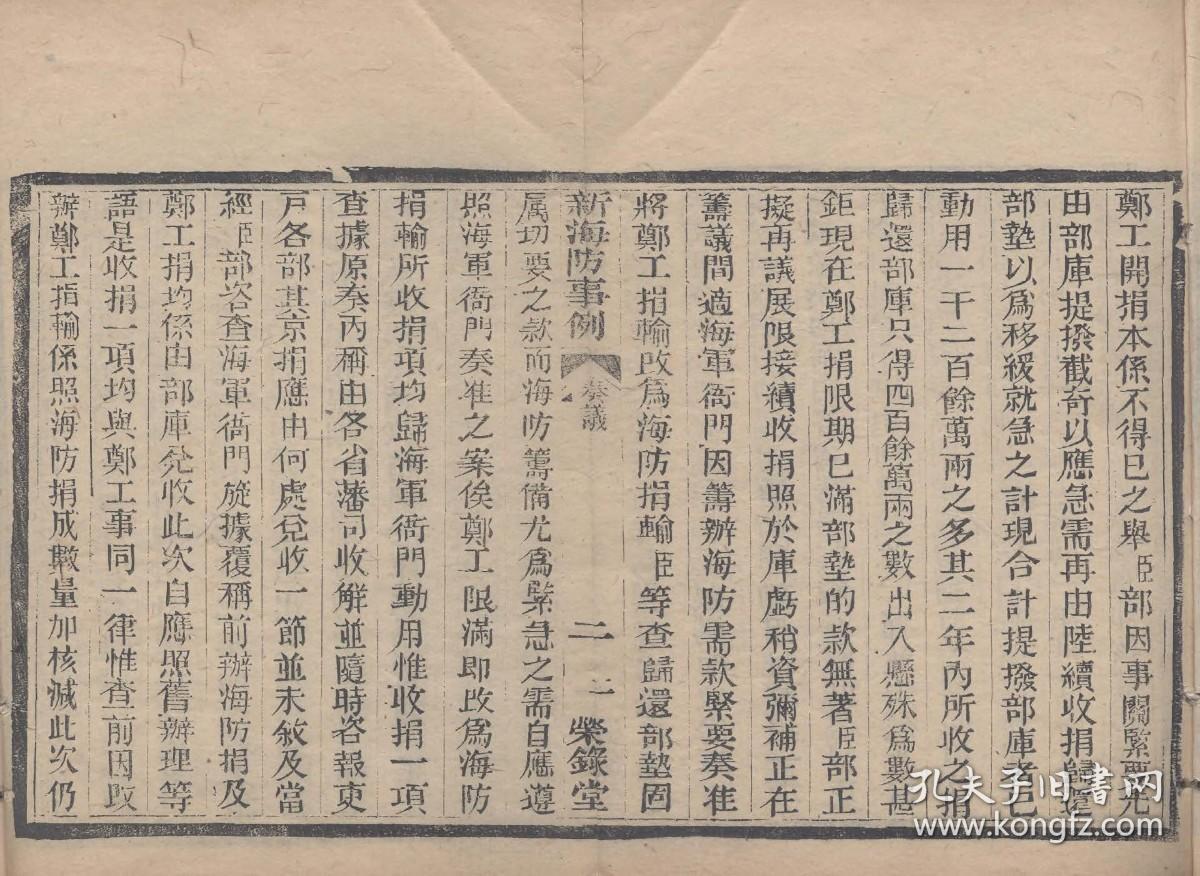 鄭工開捐本係不得已之舉臣部因事關緊要先
由部庫提撥截奇以應急需再由陸續收捐歸還
部墊以爲移緩就急之計現合計提撥部庫者已
動用一千二百餘萬兩之多其二年內所收之捐
歸還部庫只得四百餘萬兩之數出入懸殊爲數甚
鉅現在鄭工捐限期已滿部墊的款無著臣部正
擬再議展限接續收捐照於庫虧稍資彌補正在
籌議間適海軍衙門因籌辦海防需款緊要奏准
將鄭工捐輸改爲海防捐輸臣等查歸還部墊固
新海防事例 奏議 二 二 榮錄堂
属切要之款而海防籌備尤爲緊急之需自應遵
照海軍衙門奏准之案俟鄭工限滿即改爲海防
捐輸所收捐項均歸海軍衙門動用惟收捐一項
查據原奏內稱由各省藩司收解並隨時咨報吏
戶各部其京捐應由何處兌收一節並未敘及當
經臣部咨查海軍衙門旋據覆稱前辦海防捐及
鄭工捐均係由部庫兌收此次自應照舊辦理等
語是收捐一項均與鄭工事同一律惟查前因改
辦鄭工捐輸係照海防捐成數量加核減此次仍
孔夫子旧书网
www.kongfz.com